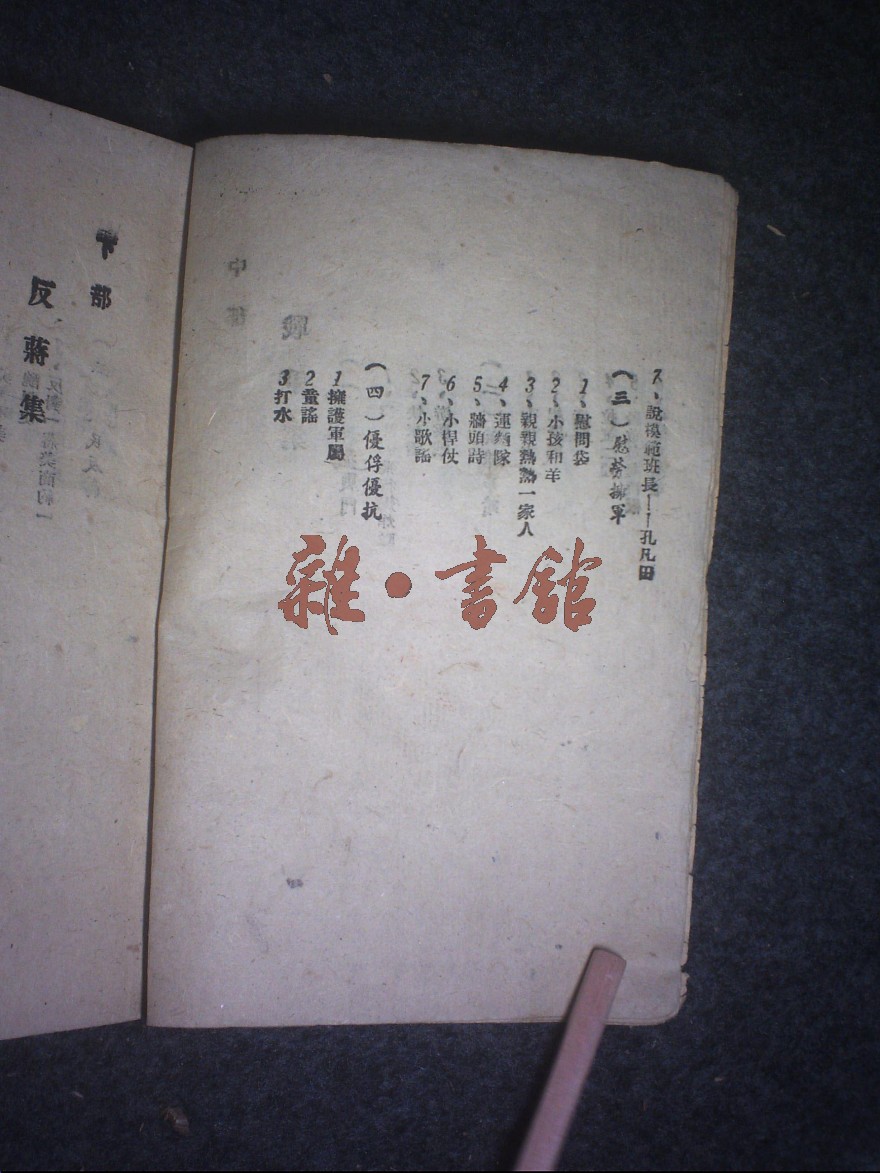 7、說模範班長——孔凡田
(三)慰勞擁軍
1、慰問袋
2、小孩和羊
3、親親熱熱一家人
4、運輸隊
5、牆頭詩
6、小桿仗
7、小歌謠
(四)優俘優抗
1擁護軍屬
2童謠
3打水
下部
反蔣集
雜·書館